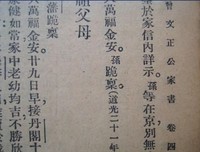 曾文正公家書 卷四
於家信內詳示。孫等在京別無
萬福金安。孫跪稟(道光二十一年
父母
藩跪稟
萬福金安。廿九日早接丹閣十
健如常家中老幼均吉不勝欣